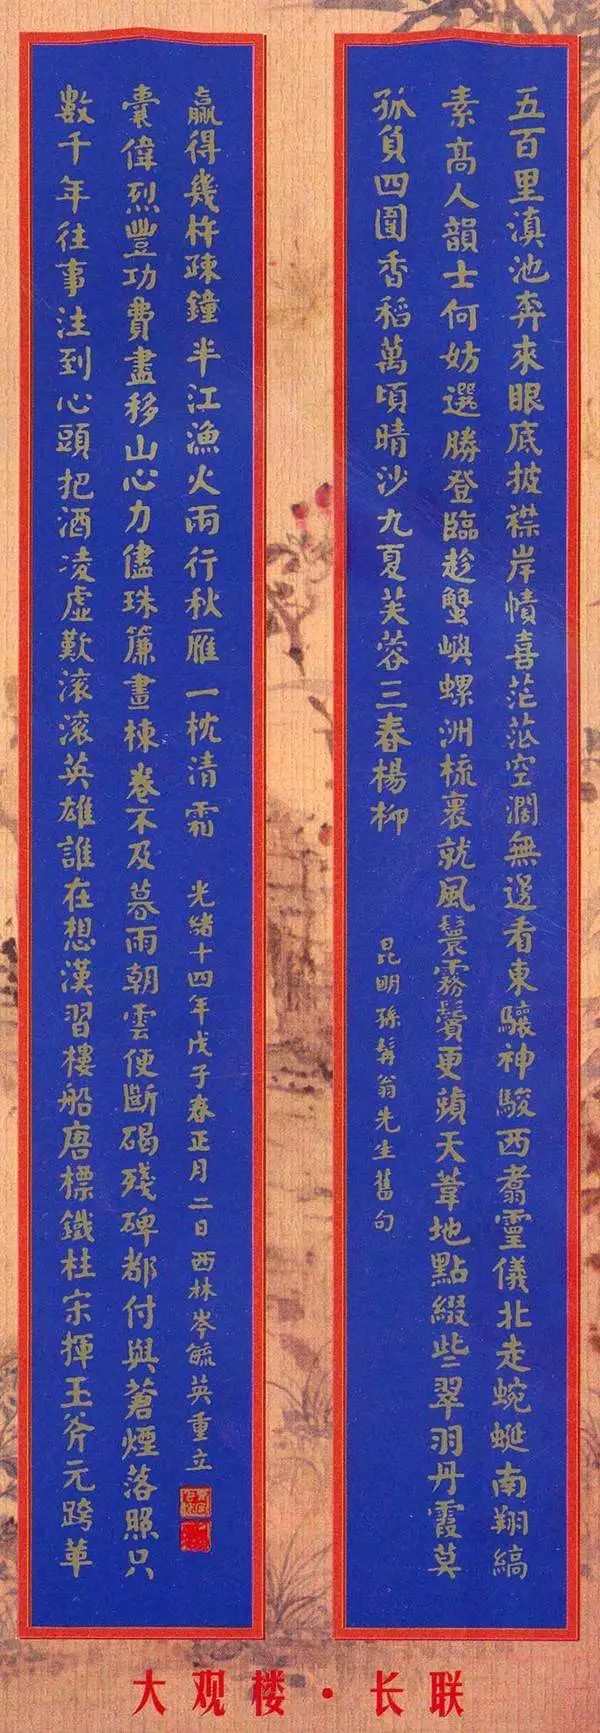 五百里滇池奔來眼底披襟岸幘喜茫茫空闊無邊看東驤神駿西翥靈儀北走蜿蜒南翔縞
素高人韻士何妨選勝登臨趁蟹嶼螺洲梳裹就風鬟霧鬢更蘋天葦地點綴些翠羽丹霞莫
孤負四圍香稻萬頃晴沙九夏芙蓉三春楊柳
昆明孫髯翁先生舊句
數千年往事注到心頭把酒凌虛歎滾滾英雄誰在想漢習樓船唐標鐵柱宋揮玉斧元跨革
囊偉烈豐功費盡移山心力儘珠簾畫棟卷不及暮雨朝雲便斷碣殘碑都付與蒼煙落照只
贏得幾杵疎鐘半江漁火兩行秋雁一枕清霜
光緒十四年戊子春正月二日西林岑毓英重立
大观楼·长联